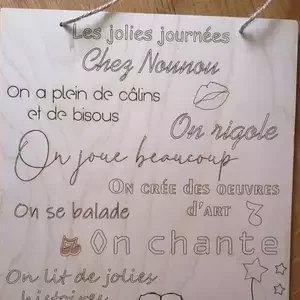 Les jolies journées
Chez Nounou
On a plein de câlins
et de bisous
On rigole
On joue beaucoup
On crée des oeuvres
d'art
On se balade
On chante
On lit de jolies
histoires